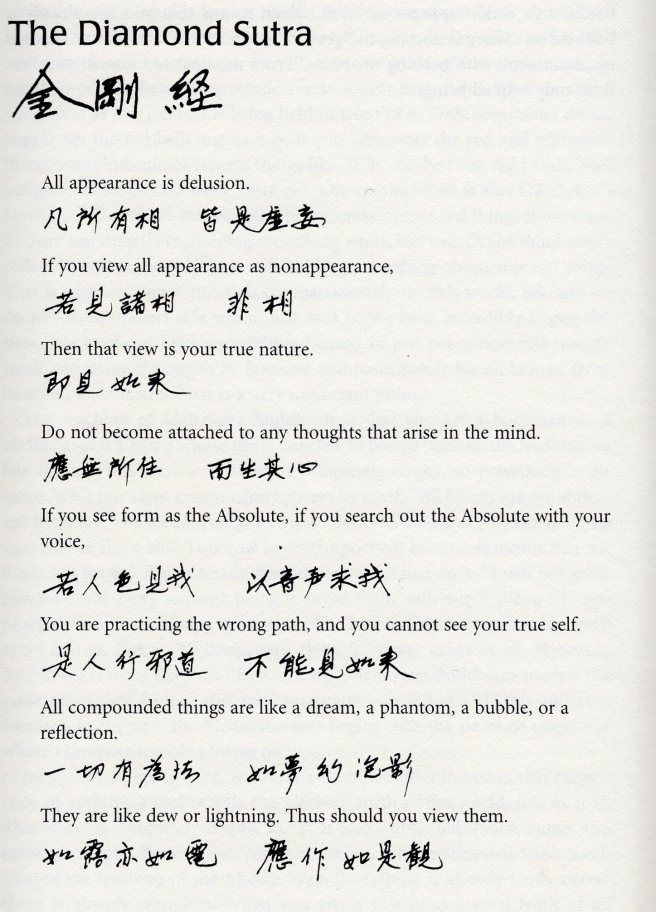 The Diamond Sutra
金剛経
All appearance is delusion.
凡所有相 皆是虛妄
If you view all appearance as nonappearance,
若見諸相 非相
Then that view is your true nature.
即見如来
Do not become attached to any thoughts that arise in the mind.
應無所住 而生其心
If you see form as the Absolute, if you search out the Absolute with your
voice,
若人色見我 以音声求我
You are practicing the wrong path, and you cannot see your true self.
是人行邪道 不能見如来
All compounded things are like a dream, a phantom, a bubble, or a
reflection.
一切有為法 如夢幻泡影
They are like dew or lightning. Thus should you view them.
如露亦如電 應作如是觀